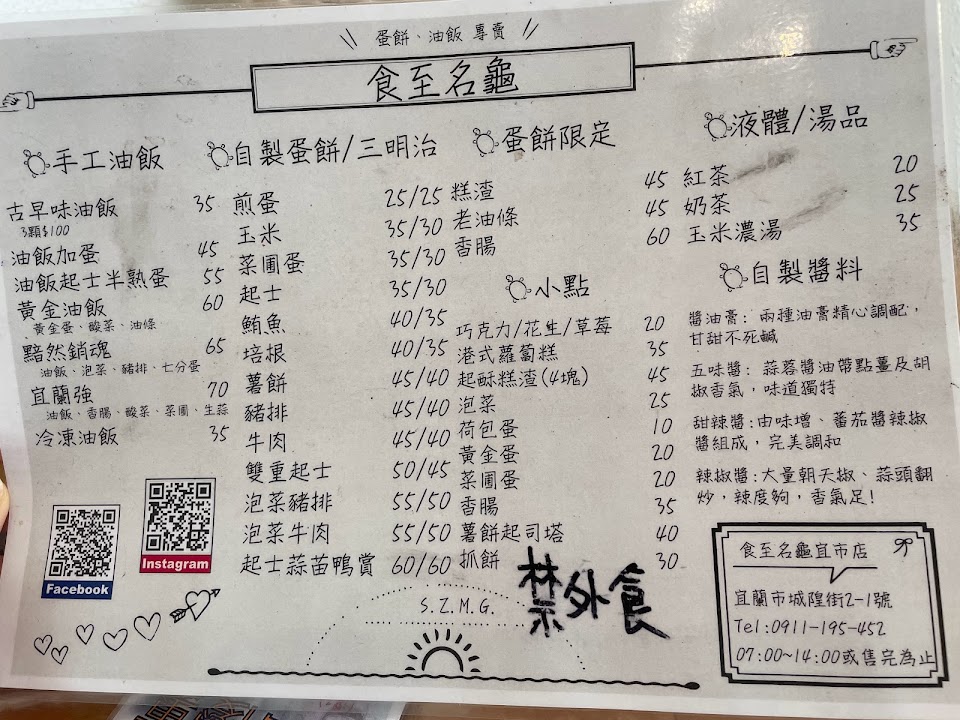 蛋餅、油飯 專賣
食至名龜
手工油飯
古早味油飯 35
3顆$100
油飯加蛋 45
油飯起士半熟蛋 55
黃金油飯 60
黃金蛋、酸菜、油條
黯然銷魂 65
油飯、泡菜、豬排、七分蛋
宜蘭強 70
油飯、香腸、酸菜、菜圃、生蒜
冷凍油飯 35
Facebook
Instagram
自製蛋餅/三明治
煎蛋 25/25
玉米 35/30
菜圃蛋 35/30
起士 35/30
鮪魚 40/35
培根 40/35
薯餅 45/40
豬排 45/40
牛肉 45/40
雙重起士 50/45
泡菜豬排 55/50
泡菜牛肉 55/50
起士蒜苗鴨賞 60/60
蛋餅限定
糕渣 45
老油條 45
香腸 60
小點
巧克力/花生/草莓 20
港式蘿蔔糕 35
起酥糕渣(4塊) 45
泡菜 25
荷包蛋 10
黃金蛋 20
菜圃蛋 20
香腸 35
薯餅起司塔 40
抓餅 30
禁外食
S.Z.M.G.
液體/湯品
紅茶 20
奶茶 25
玉米濃湯 35
自製醬料
醬油膏: 兩種油膏精心調配,
甘甜不死鹹
五味醬: 蒜蓉醬油帶點薑及胡
椒香氣, 味道獨特
甜辣醬:由味增、蕃茄醬辣椒
醬組成, 完美調和
辣椒醬:大量朝天椒、蒜頭翻
炒, 辣度夠, 香氣足!
食至名龜宜市店
宜蘭市城隍街2-1號
Tel:0911-195-452
07:00~14:00或售完為止